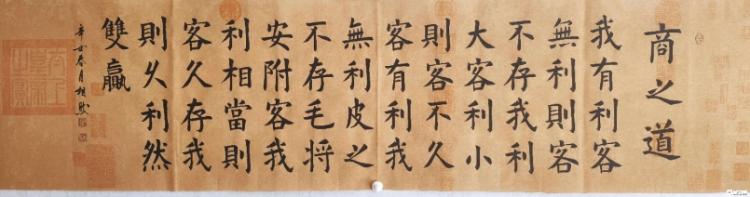 商之道
我有利客
無利則客
不存我利
大客利小
則客不久
客有利我
無利皮之
不存毛将
安附客我
利相當則
客久存我
則久利然
雙贏
辛丑春月